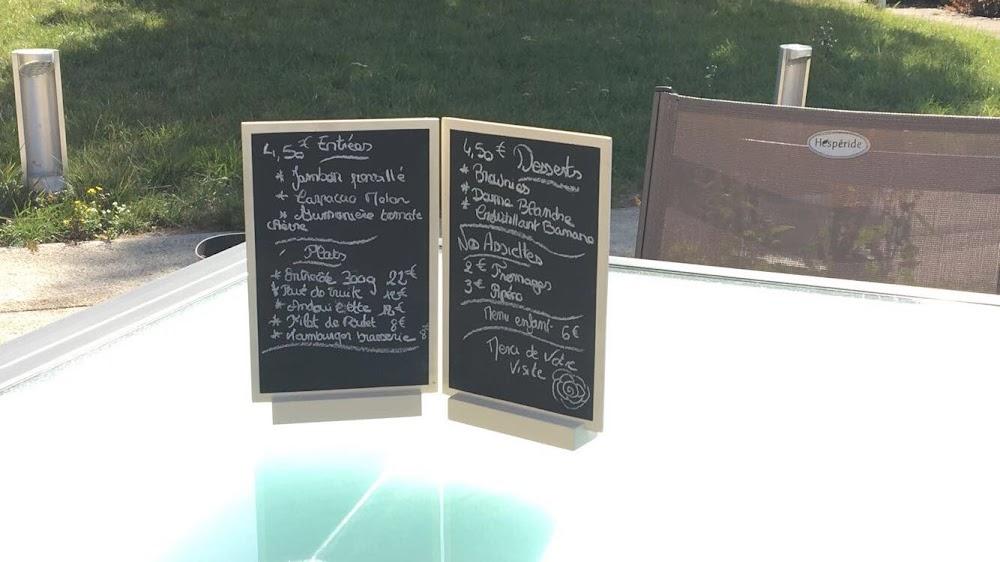 4,50€ Entrées
* Jambon persillé
* Carpaccio Melon
* tomate
chèvre
Plats
* Entrecôte 300g 22€
* Pavé de truite
* Andouillette
* Filet de Poulet 8€
* Hamburger brasserie
4,50€ Desserts
* Brownies
* Dame Blanche
* Croustillant Banane
Nos Assiettes
2€ Fromages
3€ Apéro
Menu enfant 6€
Merci de Votre
Visite
Hespéride